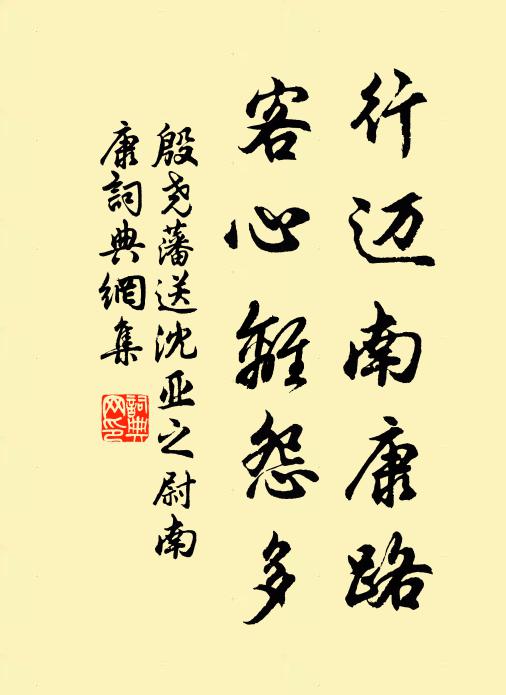 行迈南康路
客心離怨多
殷尧藩送沈亚之尉南
康詞典網集
詞典
网印